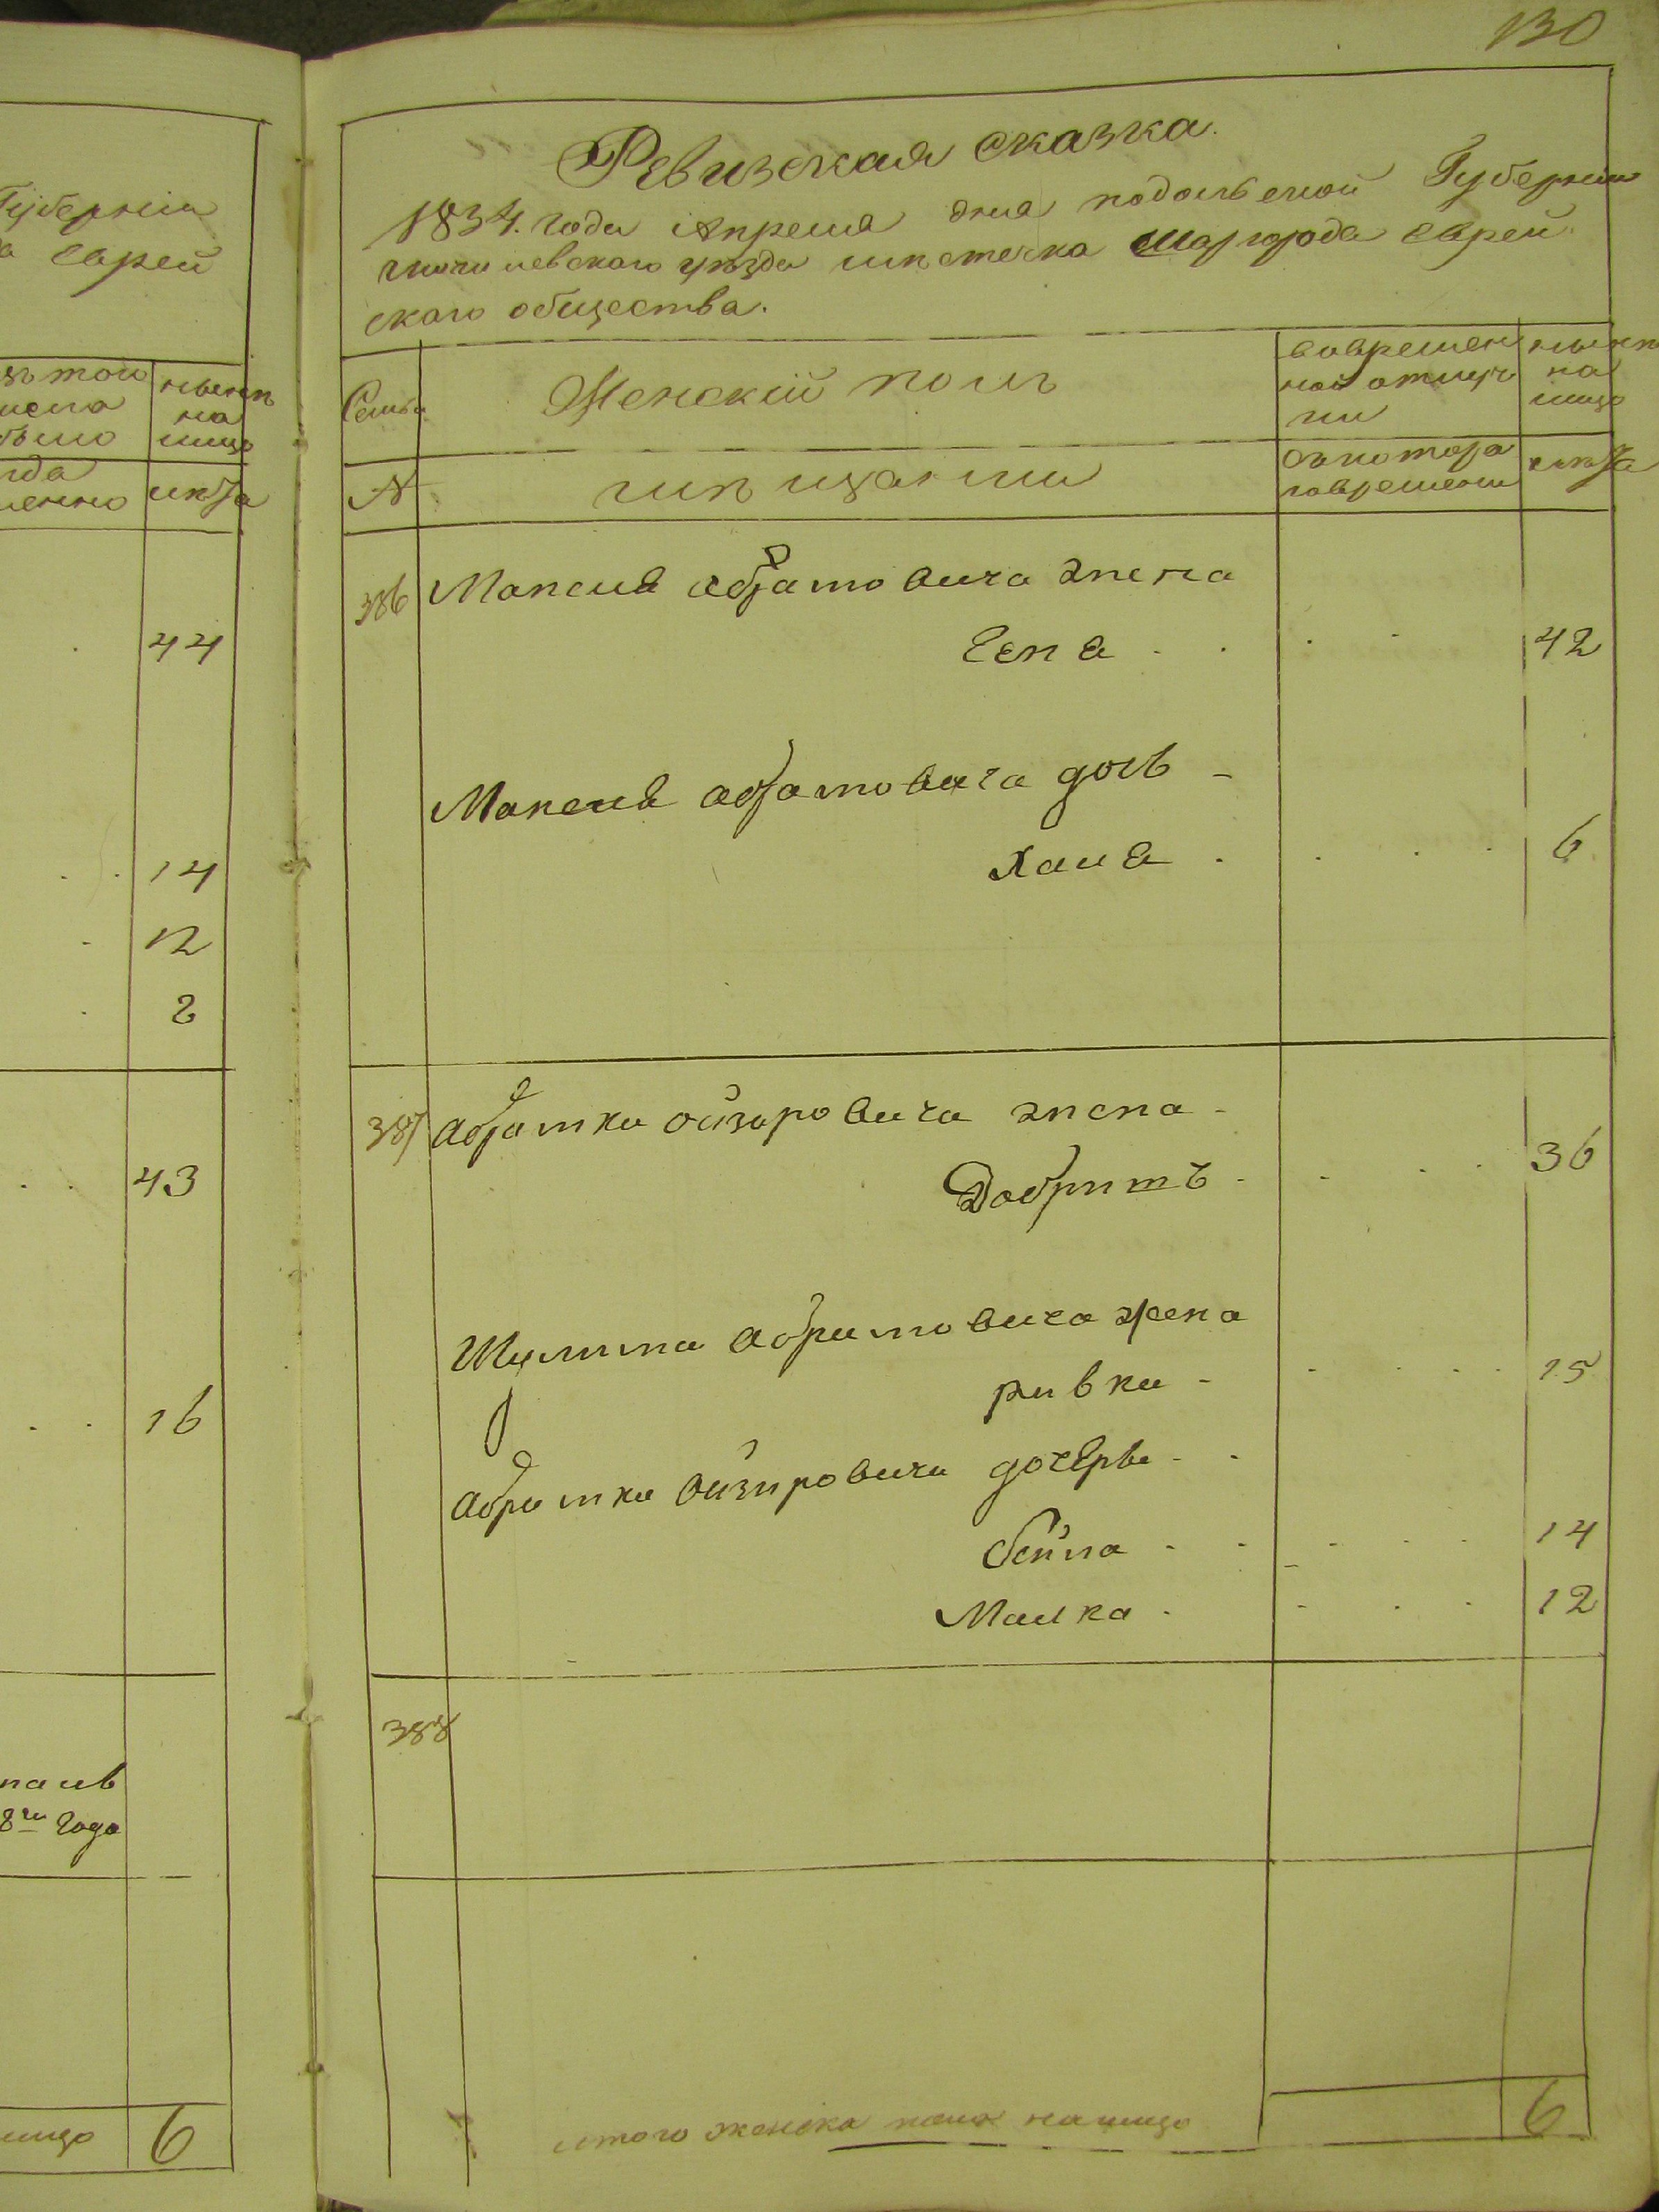 Губерніи
а Еврей
изъ того
числа
было
нынѣ
на
лицо
гда
менно
лѣта
44
14
12
8
43
16
паль
8го Года
лицо
6
130
Ревизская сказка.
1834. года Апреля дня подольской Губерніи
могилевского уѣзда мѣстечка Шаргорода Еврей
ского общества.
Семья
Женскій полъ
вовремен
ной отлуч
ки
нынѣ
на
лицо
№
мѣщанки
съкотора
го времени
лѣта
386
Манеля абрамовича жена
Сепа
42
Манеля абрамовича дочь
Хана
6
387
абрамка ойзеровича жена
Добришъ
36
Шулима абрамовича жена
ривка
15
абрамка ойзеровича дочерьи
бейла
14
Малка
12
388
итого женска пола налицо
6